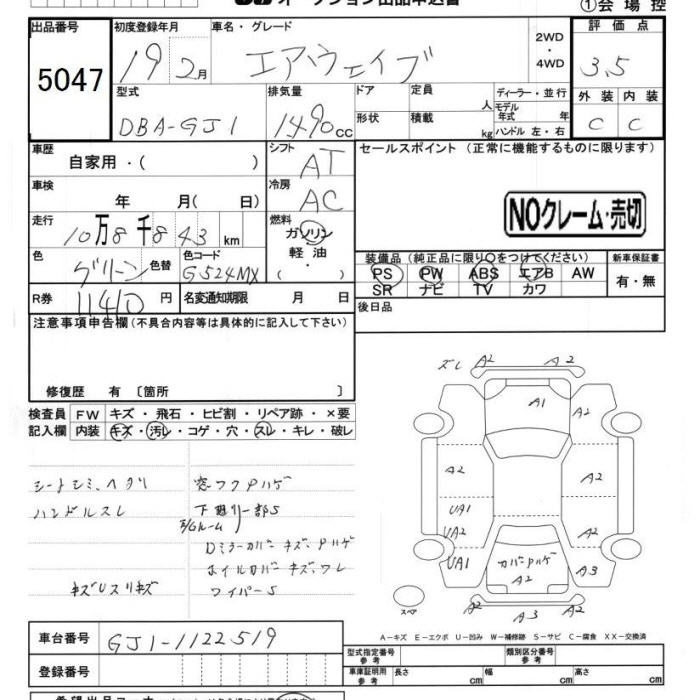 オークション出品申込書
①会場控
出品番号 初度登録年月 車名・グレード 評価点
5047 19 2月 エアウェイブ 2WD・4WD 3.5
型式 排気量 ドア 定員 人 ディーラー・並行 外装 内装
DBA-GJ1 1490cc 形状 積載 kg モデル年式 年 ハンドル 左・右 C C
車歴 自家用・( ) シフト AT セールスポイント (正常に機能するものに限ります)
車検 年 月( 日) 冷房 AC
NOクレーム・売切
走行 10万8千843km 燃料 ガソリン・軽油・( )
色 グリーン 色替 色コード G524MX
装備品 (純正品に限り○をつけてください) 新車保証書
PS PW ABS エアB AW 有・無
SR ナビ TV カワ
R券 11410円 名変通知期限 月 日 後日品
注意事項申告欄(不具合内容等は具体的に記入して下さい)
修復歴 有 〔箇所 〕
検査員 FW キズ・飛石・ヒビ割・リペア跡・×要
記入欄 内装 キズ・汚レ・コゲ・穴・スレ・キレ・破レ
シートシミ、ヘタリ 窓ワクPハゲ
ハンドルスレ 下廻リ一部S
E/Gルーム
Dミラーカバーキズ、Pハゲ
ホイルカバーキズ、ワレ
キズUスリキズ ワイパーS
ズレ A2 A2
A1 A2
A2 A2
UA1
UA2 A2
UA1 カバーPハゲ A3
A2
A2 A3 A2
スペア
A-キズ E-エクボ U-凹み W-補修跡 S-サビ C-腐食 XX-交換済
車台番号 GJ1-1122519
登録番号
型式指定番号 参考 類別区分番号 参考
車庫証明用 参考 長さ cm 幅 cm 高さ cm